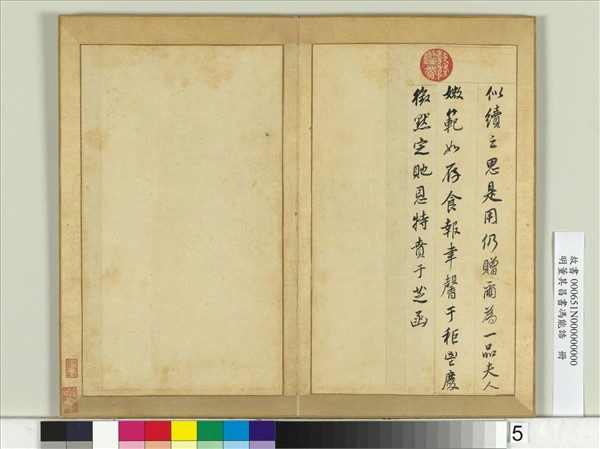 似續之思是用仍贈爾為一品夫人
嫩範如存食報聿馨于秬鬯慶
徵默定貤恩特賁于芝函
故書000651N000000000
明董其昌書馮能誥 冊
5